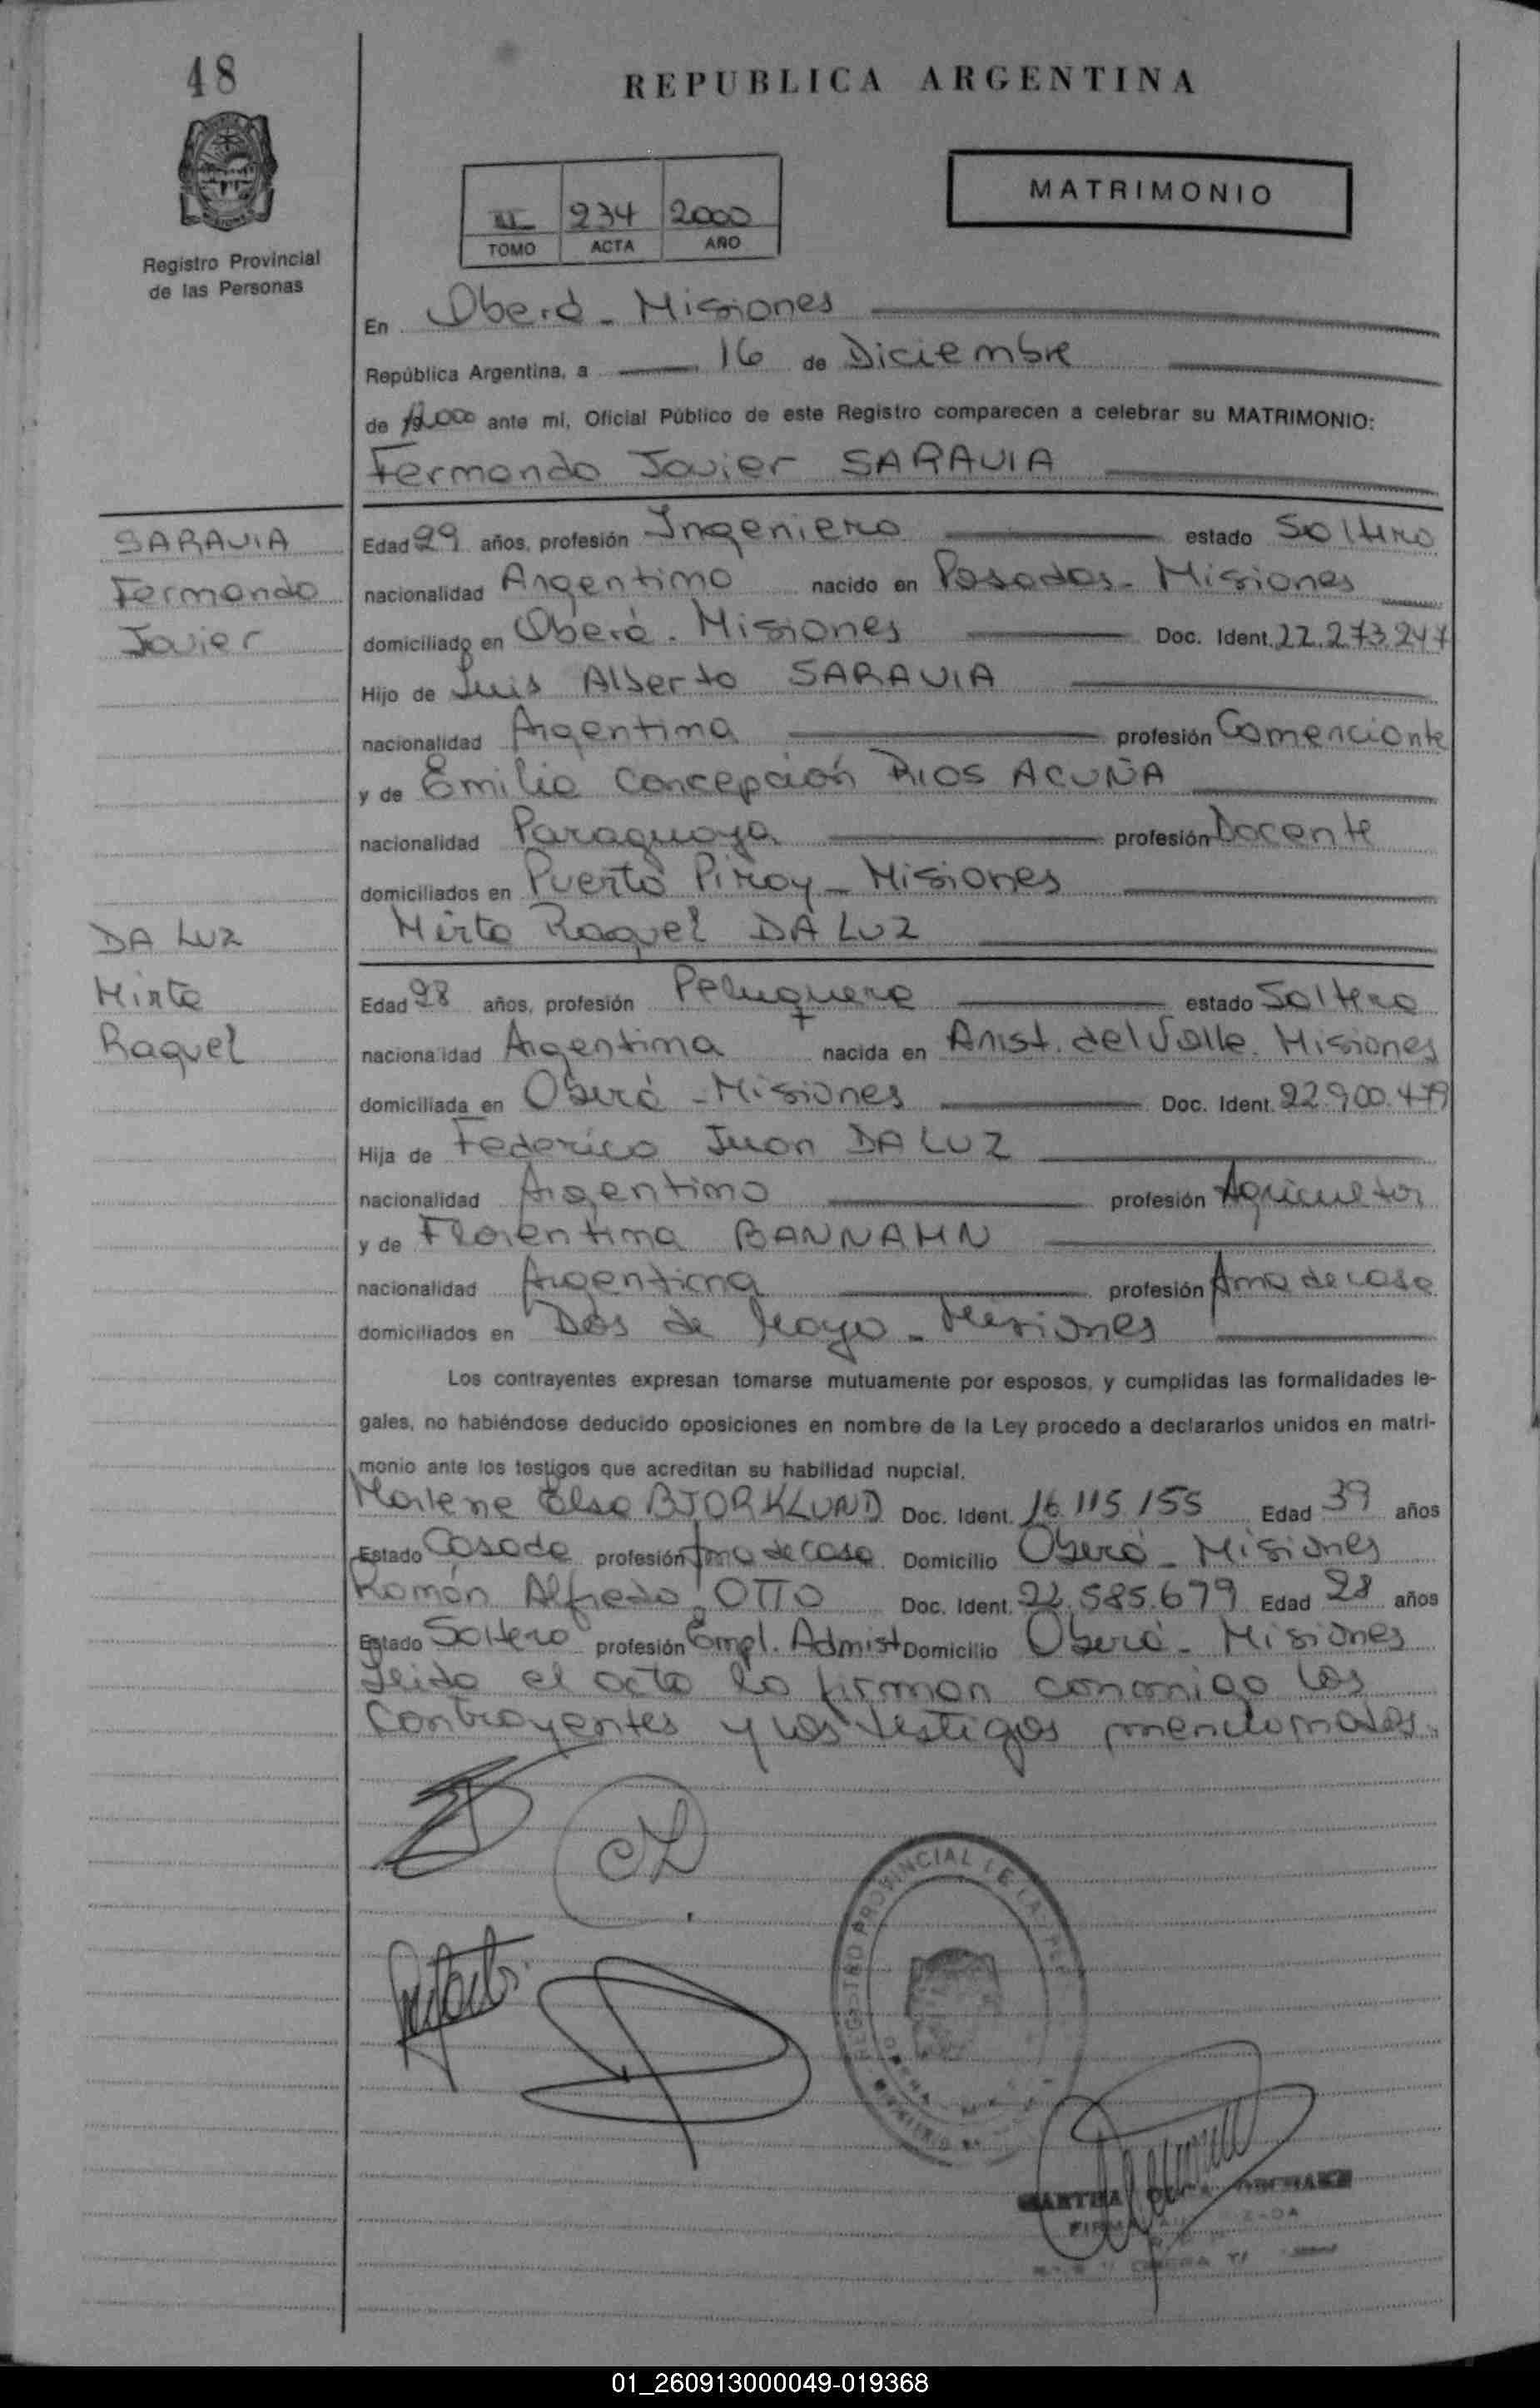 48
REPUBLICA ARGENTINA
MATRIMONIO
II 234 2000
TOMO ACTA AÑO
Registro Provincial
de las Personas
En Oberá - Misiones
República Argentina, a 16 de Diciembre
de 2.000 ante mi, Oficial Público de este Registro comparecen a celebrar su MATRIMONIO:
Fernando Javier SARAVIA
SARAVIA
Fernando
Javier
Edad 29 años, profesión Ingeniero estado Soltero
nacionalidad Argentino nacido en Posadas - Misiones
domiciliado en Oberá - Misiones Doc. Ident. 22.273.247
Hijo de Luis Alberto SARAVIA
nacionalidad Argentina profesión Comerciante
y de Emilia Concepción RIOS ACUÑA
nacionalidad Paraguaya profesión Docente
domiciliados en Puerto Piray - Misiones
Mirta Raquel DA LUZ
DA LUZ
Mirta
Raquel
Edad 28 años, profesión Peluquera estado Soltera
nacionalidad Argentina nacida en Arist. del Valle. Misiones
domiciliada en Oberá - Misiones Doc. Ident. 22.900.479
Hija de Federico Juan DA LUZ
nacionalidad Argentino profesión Agricultor
y de Florentina BANNAHN
nacionalidad Argentina profesión Ama de casa
domiciliados en Dos de Mayo - Misiones
Los contrayentes expresan tomarse mutuamente por esposos, y cumplidas las formalidades le-
gales, no habiéndose deducido oposiciones en nombre de la Ley procedo a declararlos unidos en matri-
monio ante los testigos que acreditan su habilidad nupcial.
Marlene Elsa BJORKLUND Doc. Ident. 16.115.155 Edad 39 años
Estado Casada profesión Ama de casa Domicilio Oberá - Misiones
Román Alfredo OTTO Doc. Ident. 22.585.679 Edad 28 años
Estado Soltero profesión Empl. Admist Domicilio Oberá - Misiones
Leida el acta la firman conmigo los
Contrayentes y los testigos mencionados.
REGISTRO PROVINCIAL DE LAS
MINISTERIO
FIRMA
01_260913000049-019368